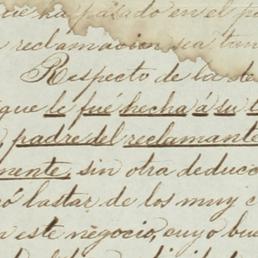 que ha pasado en el p
reclamacion sea tran
Respecto de la de
que le fué hecha á su t
padre del reclamante
mente, sin otra deducc
ó lastar de los muy c
n este negocio, cuyo bu